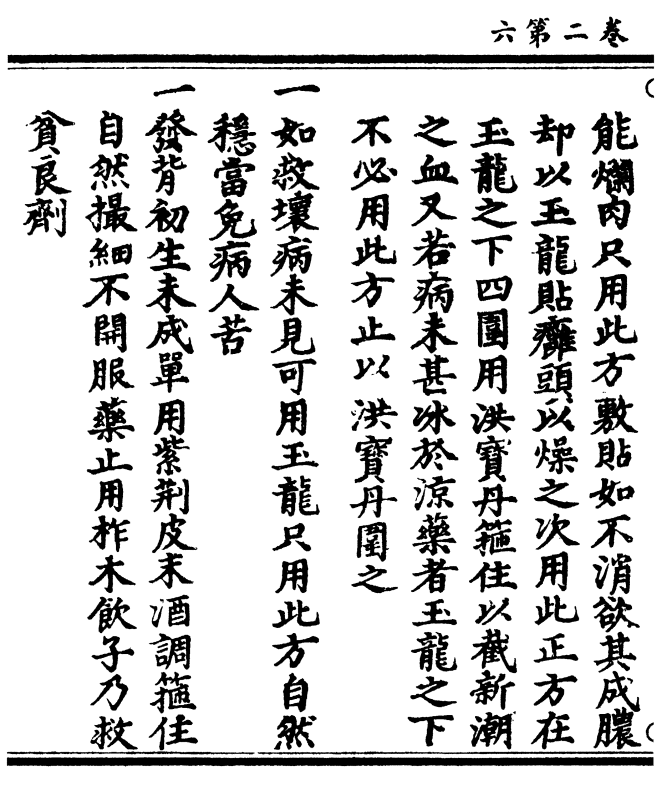 卷二第六
能爛肉只用此方敷貼如不消欲其成膿
却以玉龍貼癰頭以燥之次用此正方在
玉龍之下四圍用洪寶丹箍住以截新潮
之血又若病未甚冰於涼藥者玉龍之下
不必用此方止以洪寶丹圍之
一如救壞病未見可用玉龍只用此方自然
穩當免病人苦
一發背初生未成單用紫荆皮末酒調箍住
自然撮細不開服藥止用柞木飲子乃救
貧良劑